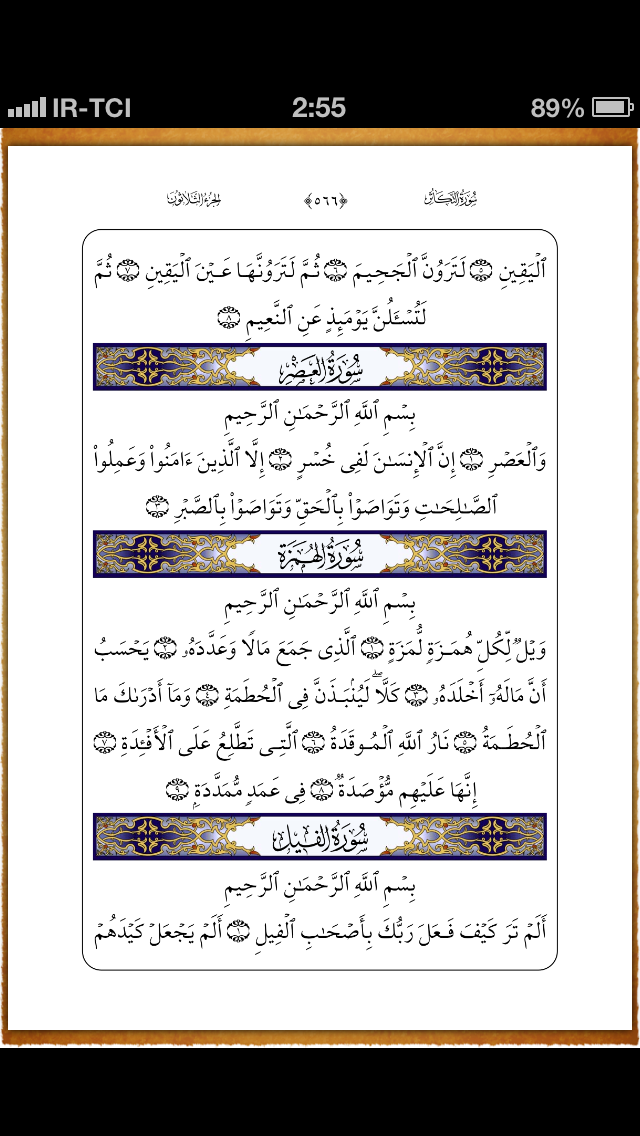 IR-TCI 2:55 89%
سُورَةُ التَّكَاثُر ﴿٥٦٦﴾ الجُزءُ الثَّلَاثُونَ
ٱلۡيَقِينِ ٥ لَتَرَوُنَّ ٱلۡجَحِيمَ ٦ ثُمَّ لَتَرَوُنَّهَا عَيۡنَ ٱلۡيَقِينِ ٧ ثُمَّ
لَتُسۡـَٔلُنَّ يَوۡمَئِذٍ عَنِ ٱلنَّعِيمِ ٨
سُورَةُ العَصۡرِ
بِسۡمِ ٱللَّهِ ٱلرَّحۡمَـٰنِ ٱلرَّحِيمِ
وَٱلۡعَصۡرِ ١ إِنَّ ٱلۡإِنسَـٰنَ لَفِى خُسۡرٍ ٢ إِلَّا ٱلَّذِينَ ءَامَنُوا۟ وَعَمِلُوا۟
ٱلصَّـٰلِحَـٰتِ وَتَوَاصَوۡا۟ بِٱلۡحَقِّ وَتَوَاصَوۡا۟ بِٱلصَّبۡرِ ٣
سُورَةُ الهُمَزَةِ
بِسۡمِ ٱللَّهِ ٱلرَّحۡمَـٰنِ ٱلرَّحِيمِ
وَيۡلٌ لِّكُلِّ هُمَزَةٍ لُّمَزَةٍ ١ ٱلَّذِى جَمَعَ مَالًا وَعَدَّدَهُۥ ٢ يَحۡسَبُ
أَنَّ مَالَهُۥٓ أَخۡلَدَهُۥ ٣ كَلَّاۖ لَيُنۢبَذَنَّ فِى ٱلۡحُطَمَةِ ٤ وَمَآ أَدۡرَىٰكَ مَا
ٱلۡحُطَمَةُ ٥ نَارُ ٱللَّهِ ٱلۡمُوقَدَةُ ٦ ٱلَّتِى تَطَّلِعُ عَلَى ٱلۡأَفۡـِٔدَةِ ٧
إِنَّهَا عَلَيۡهِم مُّؤۡصَدَةٌ ٨ فِى عَمَدٍ مُّمَدَّدَةِۭ ٩
سُورَةُ الفِيلِ
بِسۡمِ ٱللَّهِ ٱلرَّحۡمَـٰنِ ٱلرَّحِيمِ
أَلَمۡ تَرَ كَيۡفَ فَعَلَ رَبُّكَ بِأَصۡحَـٰبِ ٱلۡفِيلِ ١ أَلَمۡ يَجۡعَلۡ كَيۡدَهُمۡ